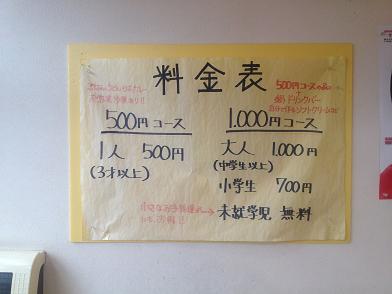 料金表
500円コース
1人 500円
(3才以上)
500円コースの品
+
ドリンクバー
自分で作るソフトクリームなど
1.000円コース
大人 1.000円
(中学生以上)
小学生 700円
未就学児 無料